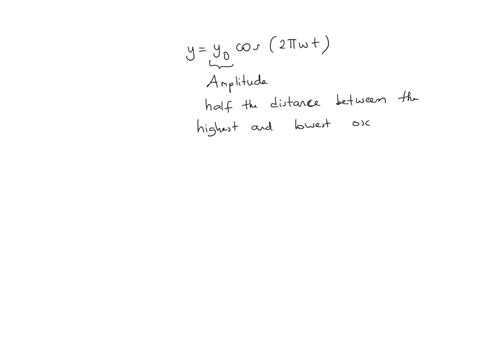 y = y₀ cos (2πωt)
Amplitude
half the distance between the
highest and lowest osc